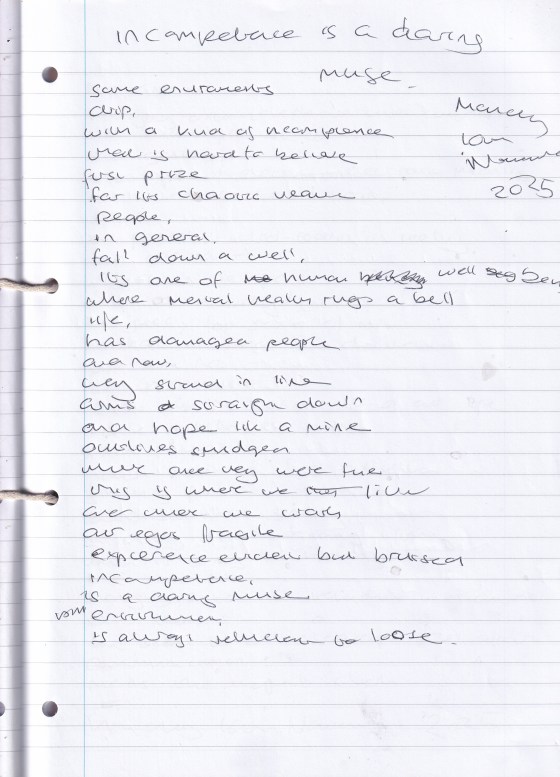 Incompetence is a daring
muse.
some environments
drip,
with a kind of incompetence
that is hard to believe
first prize
for its chaotic nature
People,
in general,
fall down a well,
its one of human well
where mental health rings a bell
life,
has damaged people
and now,
they stand in line
arms straight down
and hope like a mine
outlines smudged
where once they were fine
this is where we live
and where we work
our egos fragile
experience evident but bruised
incompetence,
is a daring muse
environment,
is always reluctant to loose.
2025